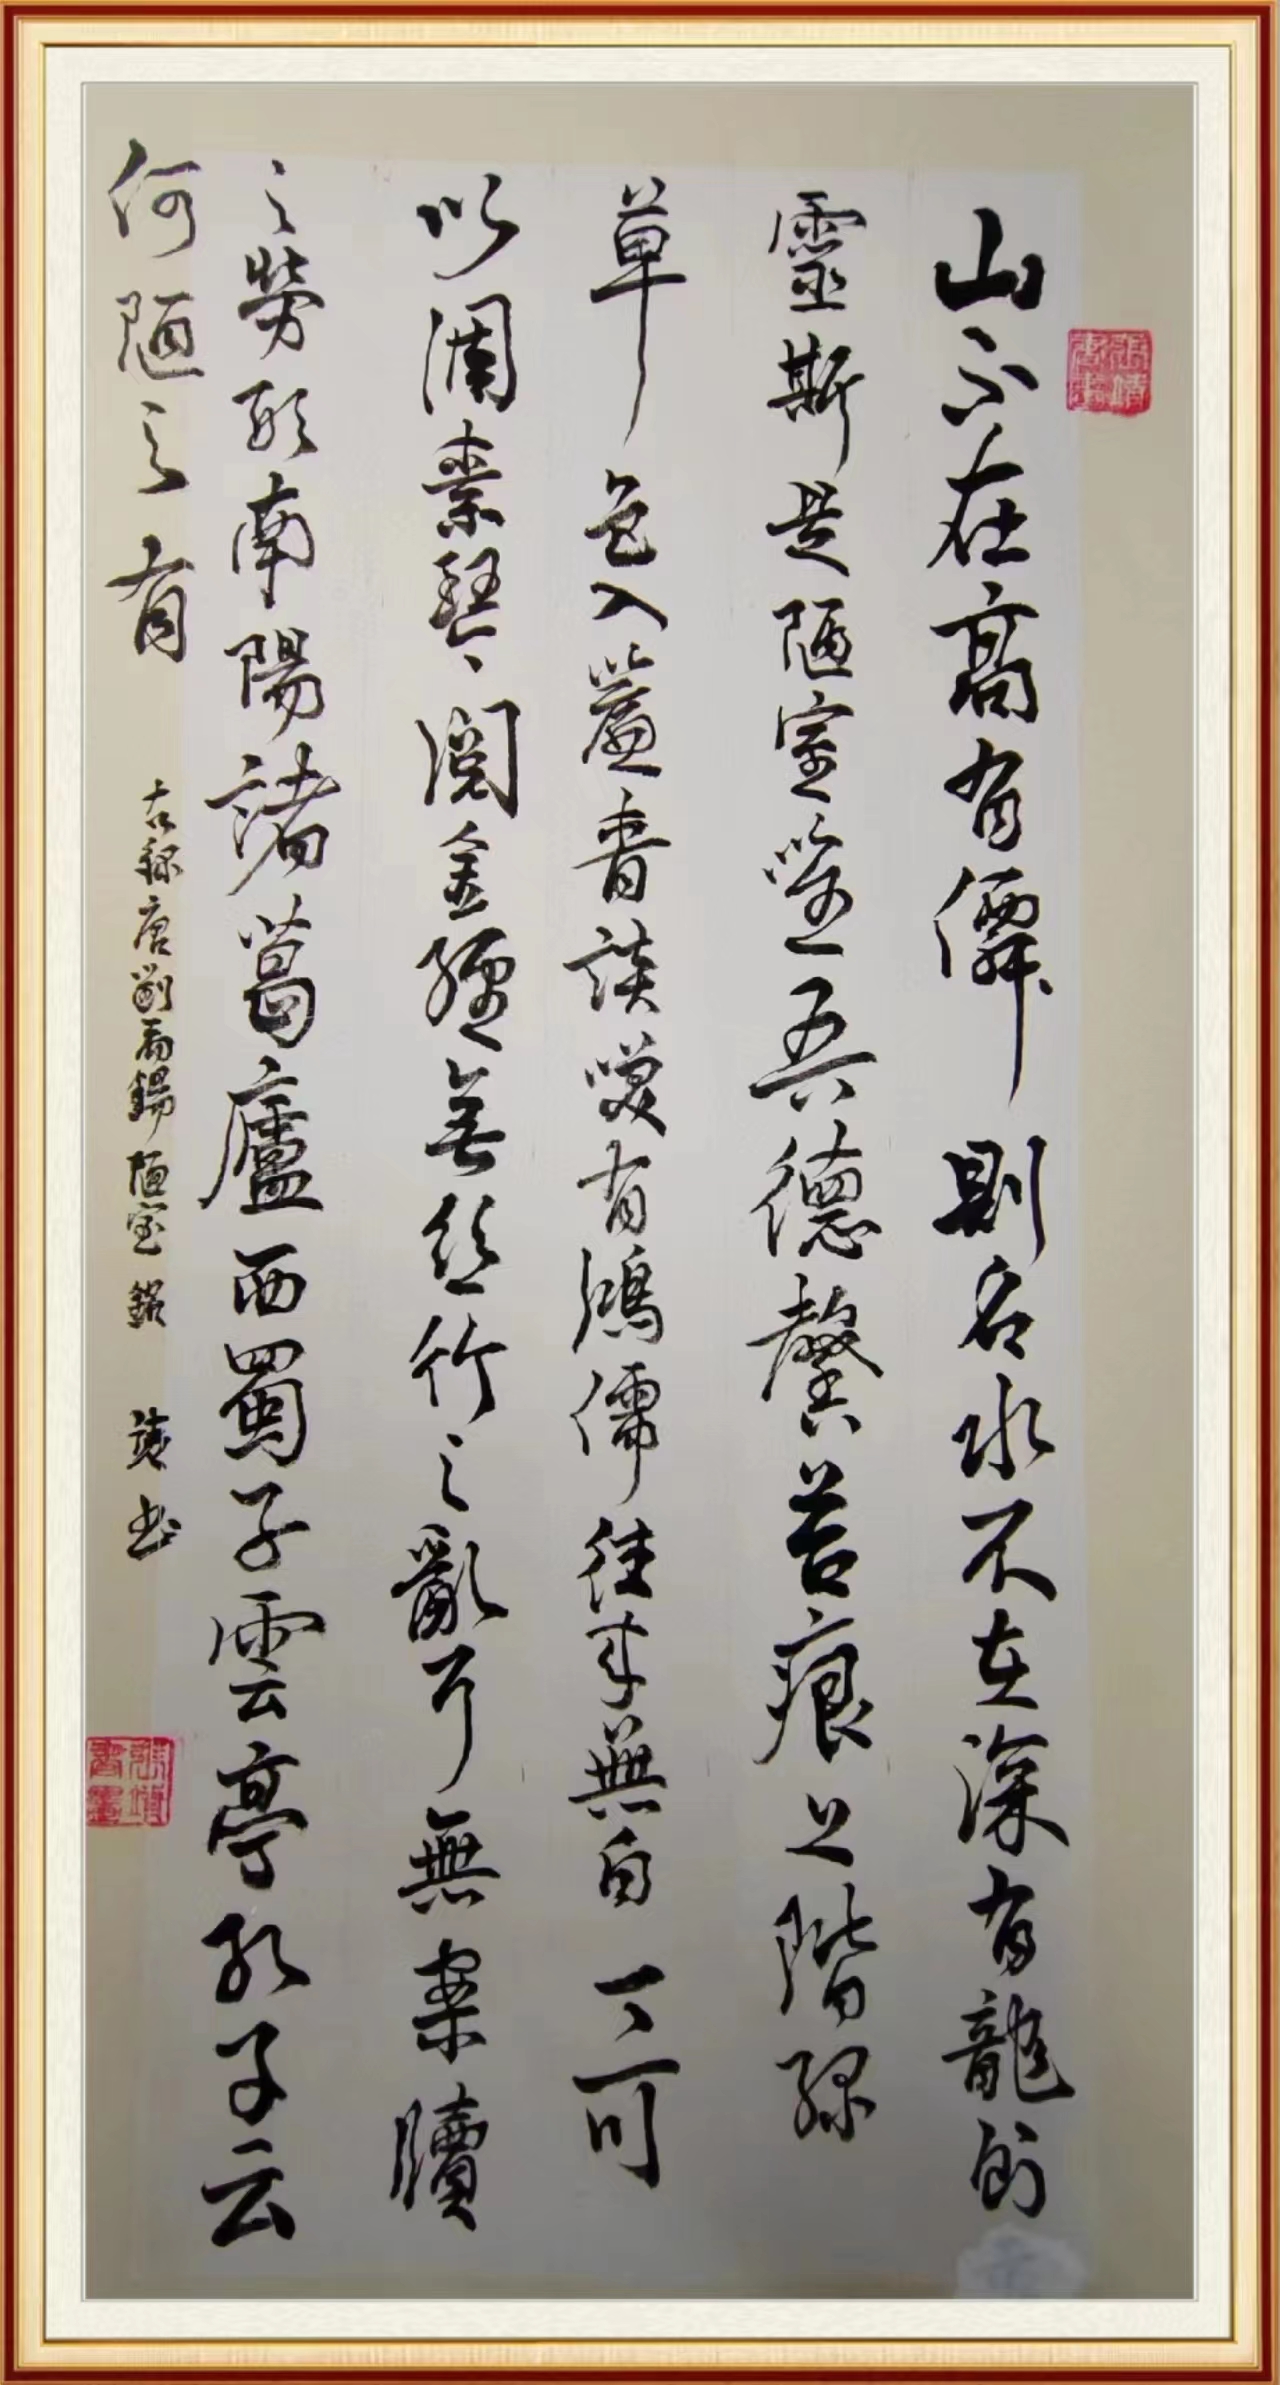 山不在高有僊則名水不在深有龍則
靈斯是陋室惟吾德馨苔痕上階綠
草色入簾青談笑有鴻儒往來無白丁可
以調素琴閱金經無絲竹之亂耳無案牘
之勞形南陽諸葛廬西蜀子雲亭孔子云
何陋之有
右錄唐劉禹錫陋室銘 靖書